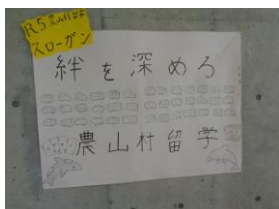 スローガン
絆を深めろ
農山村留学